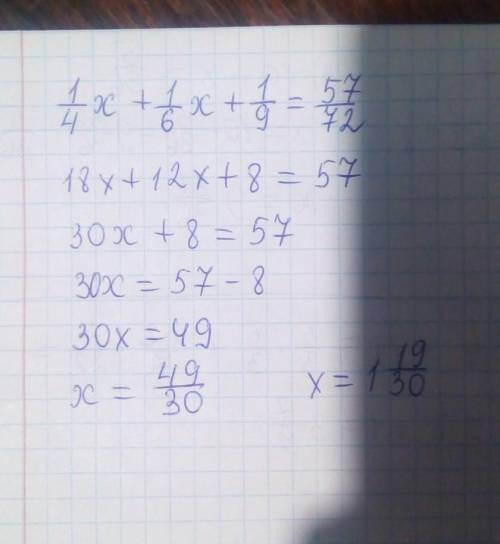 1/4 x + 1/6 x + 1/9 = 57/72
18x + 12x + 8 = 57
30x + 8 = 57
30x = 57 - 8
30x = 49
x = 49/30 x = 1 19/30